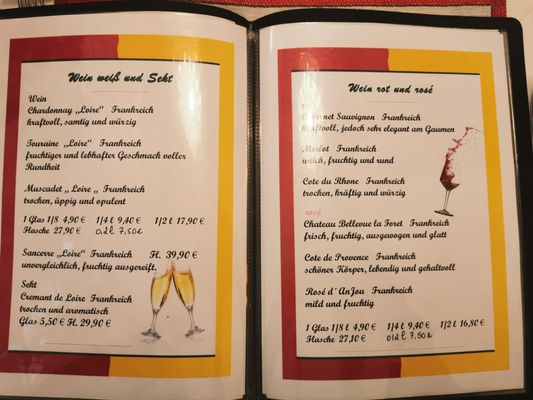 Wein weiß und Sekt
Wein
Chardonnay „Loire“ Frankreich
kraftvoll, samtig und würzig
Touraine „Loire“ Frankreich
fruchtiger und lebhafter Geschmack voller
Rundheit
Muscadet „ Loire „ Frankreich
trocken, üppig und opulent
1 Glas 1/8 4,90 € 1/4 l 9,40 € 1/2 l 17,90 €
Flasche 27,90 € 0,2l 7.50€
Sancerre „Loire“ Frankreich Fl. 39,90 €
unvergleichlich, fruchtig ausgereift,
Sekt
Cremant de Loire Frankreich
trocken und aromatisch
Glas 5,50 € Fl. 29,90 €
Wein rot und rosé
Cabernet Sauvignon Frankreich
kraftvoll, jedoch sehr elegant am Gaumen
Merlot Frankreich
weich, fruchtig und rund
Cote du Rhone Frankreich
trocken, kräftig und würzig
rosé
Chateau Bellevue la Foret Frankreich
frisch, fruchtig, ausgewogen und glatt
Cote de Provence Frankreich
schöner Körper, lebendig und gehaltvoll
Rosé d´AnJou Frankreich
mild und fruchtig
1 Glas 1/8 l 4,90 € 1/4 l 9,40 € 1/2 l 16,80 €
Flasche 27,10 € 0,2 l 7.50€